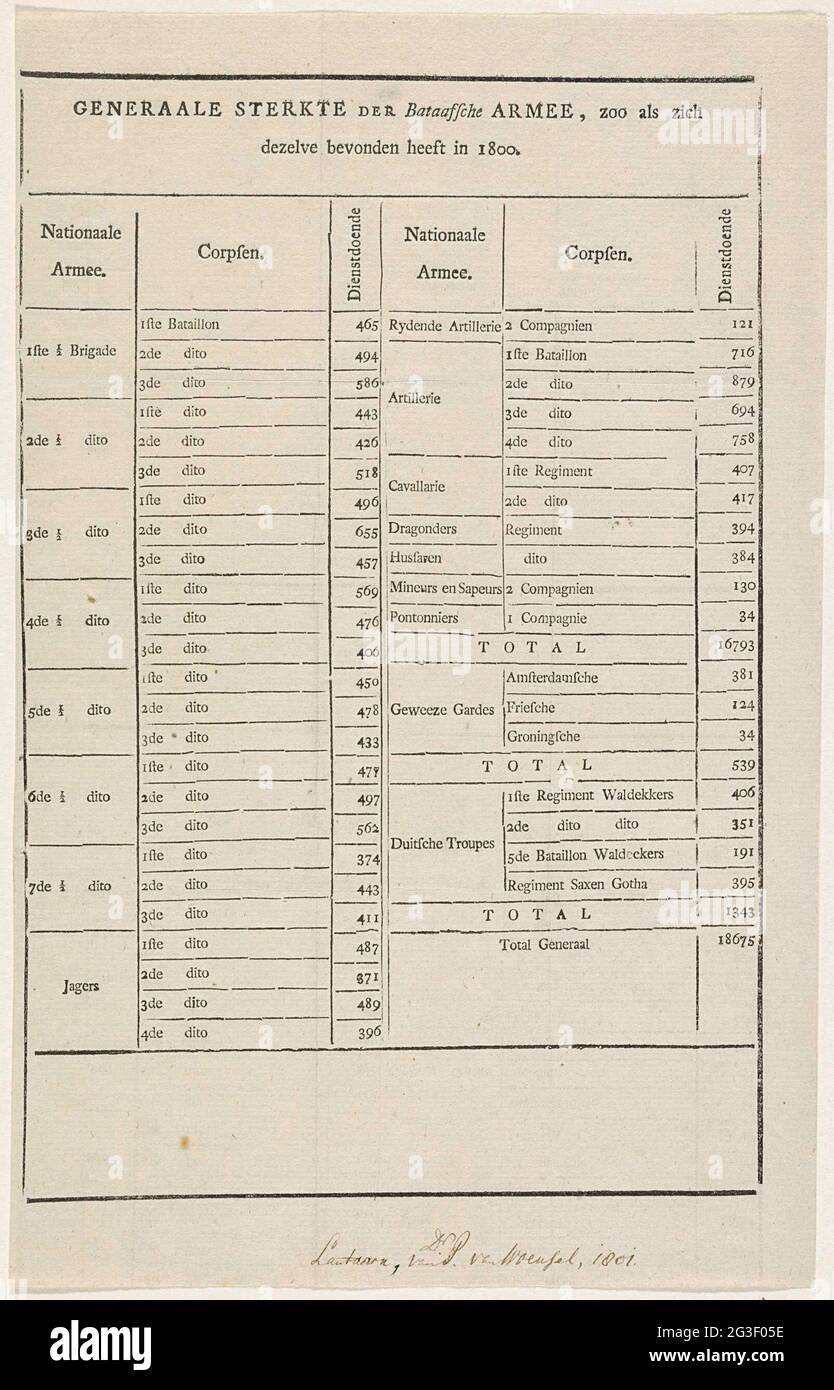 GENERAALE STERKTE DER Bataafſche ARMEE, zoo als zich
dezelve bevonden heeft in 1800.
Nationaale Armee. Corpſen. Dienstdoende
1ſte ½ Brigade
1ſte Bataillon 465
2de dito 494
3de dito 586
2de ½ dito
1ſte dito 443
2de dito 426
3de dito 518
3de ½ dito
1ſte dito 496
2de dito 655
3de dito 457
4de ½ dito
1ſte dito 569
2de dito 476
3de dito 406
5de ½ dito
1ſte dito 450
2de dito 478
3de dito 433
6de ½ dito
1ſte dito 477
2de dito 497
3de dito 562
7de ½ dito
1ſte dito 374
2de dito 443
3de dito 411
Jagers
1ſte dito 487
2de dito 371
3de dito 489
4de dito 396
Nationaale Armee. Corpſen. Dienstdoende
Rydende Artillerie 2 Compagnien 121
Artillerie
1ſte Bataillon 716
2de dito 879
3de dito 694
4de dito 758
Cavallarie
1ſte Regiment 407
2de dito 417
Dragonders Regiment 394
Husſaren dito 384
Mineurs en Sapeurs 2 Compagnien 130
Pontonniers 1 Compagnie 34
TOTAL 16793
Geweeze Gardes
Amſterdamſche 381
Frieſche 124
Groningſche 34
TOTAL 539
Duitſche Troupes
1ſte Regiment Waldekkers 406
2de dito dito 351
5de Bataillon Waldeckers 191
Regiment Saxen Gotha 395
TOTAL 1343
Total Generaal 18675
Lantaarn, van Dr P. van Woenſel, 1801.
alamy
Image ID: 2G3F05E
www.alamy.com